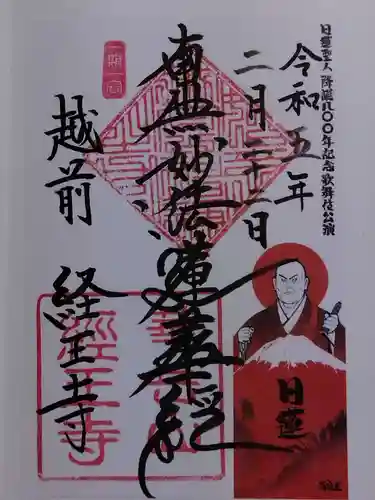 日蓮聖人 降誕八〇〇年記念歌舞伎公演
令和五年
二月二十二日
南無妙法蓮華経
越前
経王寺
經王寺
日蓮